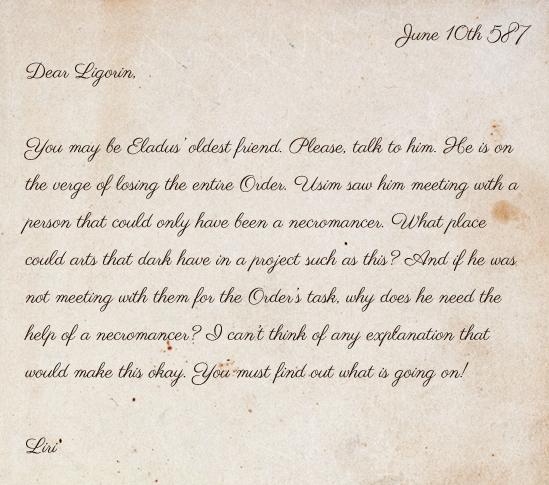 June 10th 587
Dear Ligorin,
You may be Eladus' oldest friend. Please, talk to him. He is on
the verge of losing the entire Order. Usim saw him meeting with a
person that could only have been a necromancer. What place
could arts that dark have in a project such as this? And if he was
not meeting with them for the Order's task, why does he need the
help of a necromancer? I can't think of any explanation that
would make this okay. You must find out what is going on!
Liri